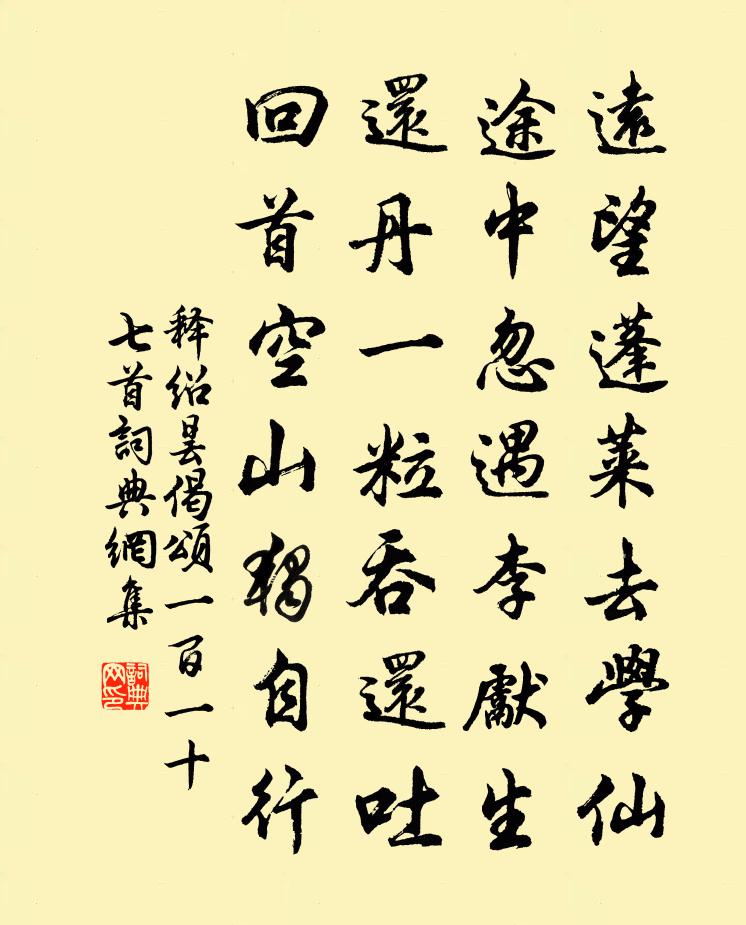 遠望蓬萊去學仙
途中忽遇李獻生
還丹一粒吞還吐
回首空山獨自行
释紹昙偈頌一百一十
七首詞典網集
詞典網印